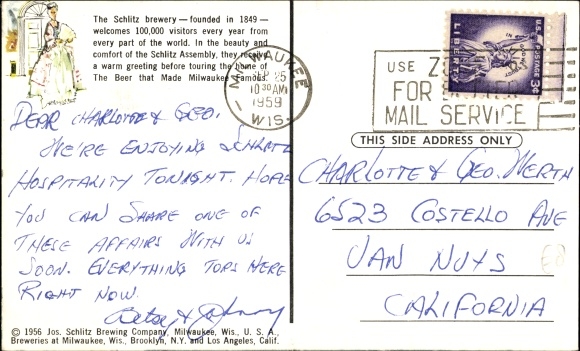 The Schlitz brewery — founded in 1849 —
welcomes 100,000 visitors every year from
every part of the world. In the beauty and
comfort of the Schlitz Assembly, they receive
a warm greeting before touring the home of
The Beer that Made Milwaukee Famous.
MILWAUKEE
SEP 25
10 30 AM
1959
WIS.
USE
FOR
MAIL SERVICE
U.S. POSTAGE 3¢
LIBERTY
IN GOD WE TRUST
DEAR CHARLOTTE & GEO.
WE'RE ENJOYING SCHLITZ
HOSPITALITY TONIGHT. HOPE
YOU CAN SHARE ONE OF
THESE AFFAIRS WITH US
SOON. EVERYTHING TOPS HERE
RIGHT NOW.
Betsy & Johnny
THIS SIDE ADDRESS ONLY
CHARLOTTE & GEO. WERTH
6523 COSTELLO AVE
VAN NUYS
CALIFORNIA
© 1956 Jos. Schlitz Brewing Company, Milwaukee, Wis., U. S. A.
Breweries at Milwaukee, Wis., Brooklyn, N.Y. and Los Angeles, Calif.